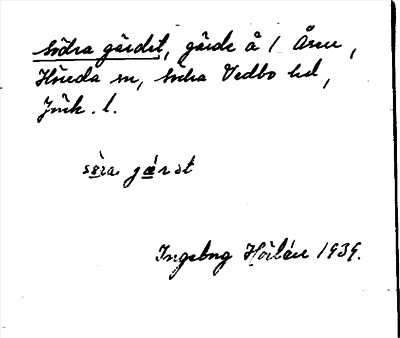 Södra gärdet, gärde å 1 Åsen,
Höreda sn, Södra Vedbo hd,
Jönk. l.
sö̀ra jǽrət
Ingeborg Höilén 1939.